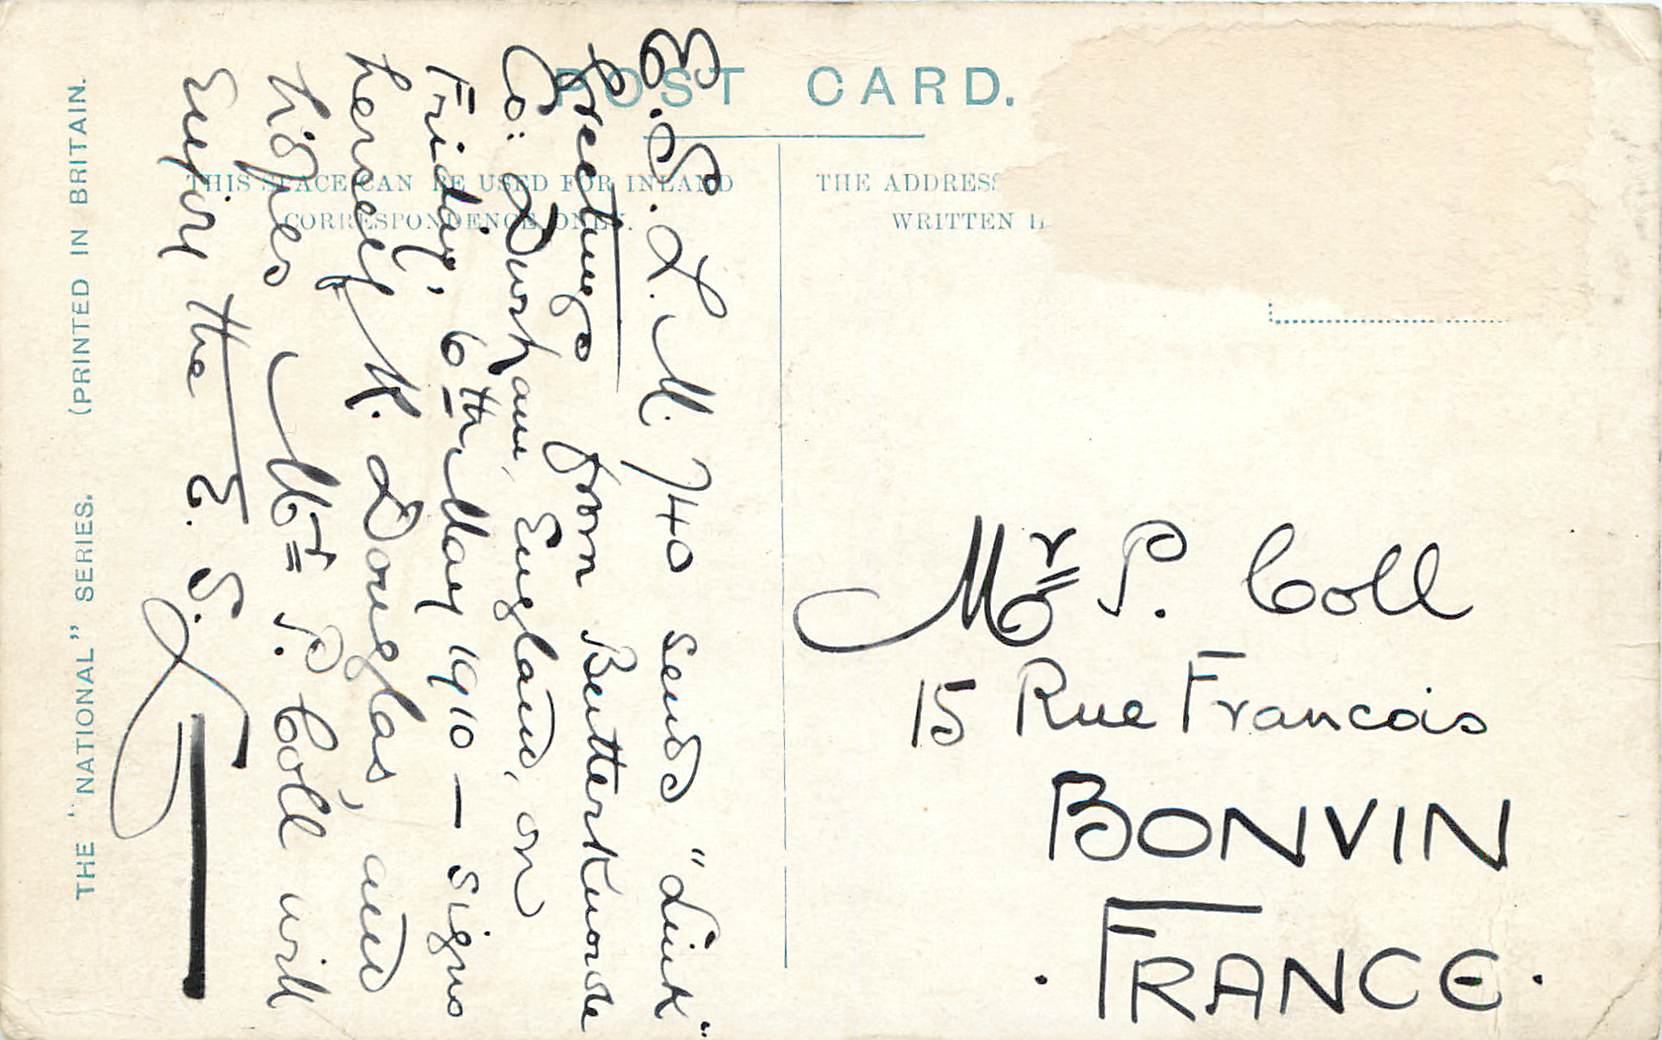 POST CARD.
THIS SPACE CAN BE USED FOR INLAND
CORRESPONDENCE ONLY.
THE ADDRESS
WRITTEN
THE "NATIONAL" SERIES. (PRINTED IN BRITAIN.
E.S.L.M. 740 sends "Link"
Greetings from Butterknowle
Co: Durham, England, on
Friday, 6th May 1910 — signs
herself K. Douglas, and
hopes Mr P. Coll will
Enjoy the E.S.
Mr P. Coll
15 Rue Francois
BONVIN
FRANCE.